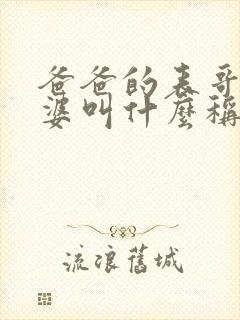 爸爸的表哥
婆叫什麼稱
流浪舊城